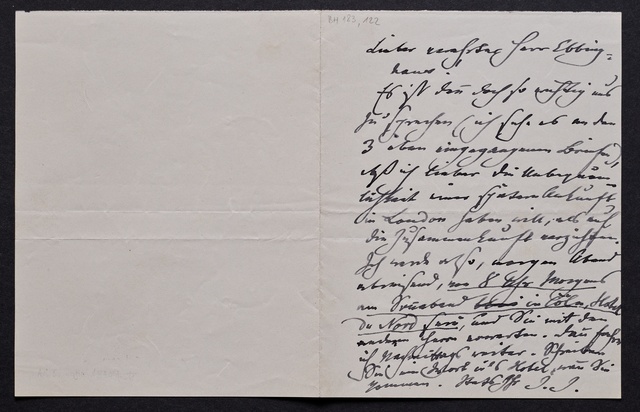 BH 183, 122
Lieber verehrter Herr Ebbing=
haus!
Es ist denn doch so wichtig uns
zu sprechen (ich sehe es an den
3 eben eingegangenen Briefen)
daß ich lieber die Unbequem
lichkeit einer späteren Ankunft
in London haben will, als auf
die Zusammenkunft verzichten.
Ich werde also, morgen Abend
abreisend, um 8 Uhr Morgens
am Sonnabend in Cöln, Hotel
du Nord sein, und Sie mit den
andern Herrn erwarten. Dann fahre
ich Nachmittags weiter. Schreiben
Sie ein Wort in's Hotel, wann Sie
kommen.